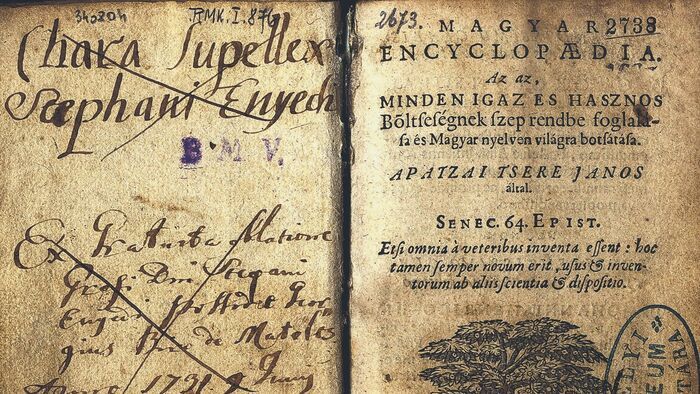 342804
RMK. I. 876
Chara Supellex
Stephani Enyedi
B. M. V.
Ex Gratuita oblatione
Stepani
Enyedi possidet Geor
gius de
Anno 1731. Juny
2673.
MAGYAR 2738
ENCYCLOPÆDIA.
Az az,
MINDEN IGAZ ES HASZNOS
Bőltseségnek szep rendbe foglalá-
sa és Magyar nyelven világra botsátasa.
APATZAI TSERE JANOS
által.
SENEC. 64. EPIST.
Etsi omnia à veteribus inventa essent: hoc
tamen semper novum erit, usus & inven-
torum ab aliis scientia & dispositio.